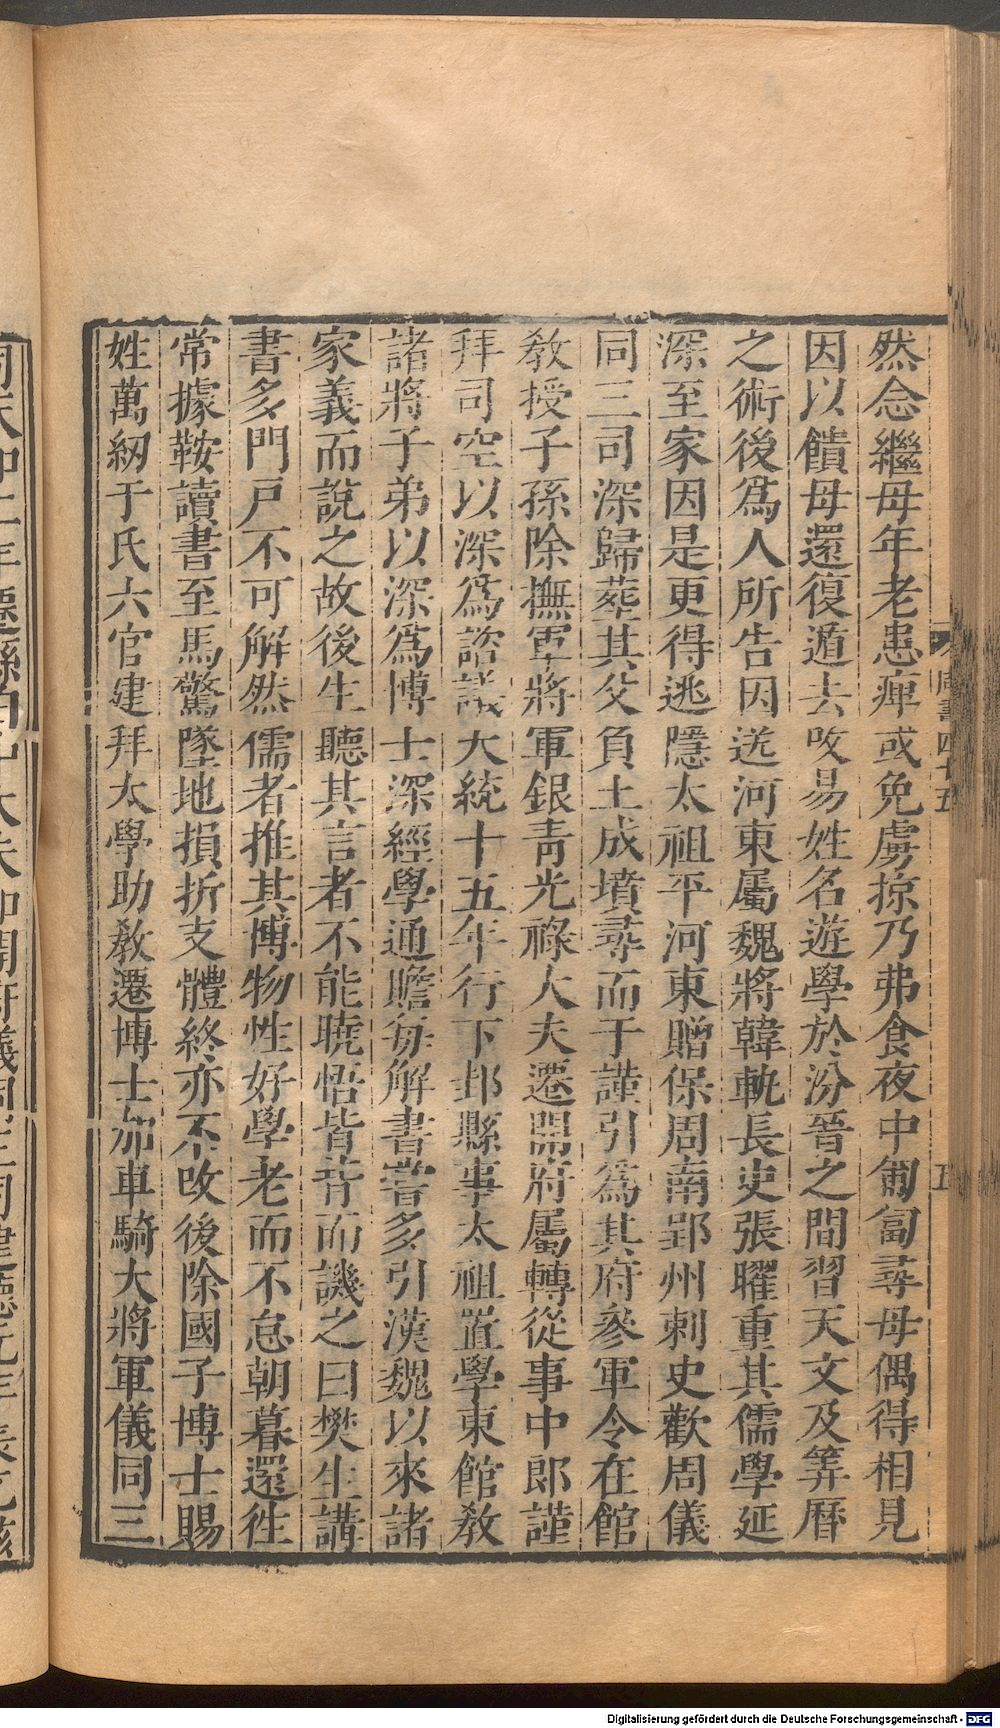 然念繼母年老患痺或免虜掠乃弗食夜中匍匐尋母偶得相見
因以饋母還復遁去改易姓名遊學於汾晉之間習天文及筭曆
之術後爲人所告因送河東屬魏將韓軌長史張曜重其儒學延
深至家因是更得逃隱太祖平河東贈保周南郢州刺史歡周儀
同三司深歸葬其父負土成墳尋而于謹引爲其府參軍令在館
教授子孫除撫軍將軍銀靑光祿大夫遷開府屬轉從事中郎謹
拜司空以深爲諮議大統十五年行下邽縣事太祖置學東館敎
諸將子弟以深爲博士深經學通贍每解書嘗多引漢魏以來諸
家義而說之故後生聽其言者不能曉悟皆背而譏之曰樊生講
書多門戸不可解然儒者推其博物性好學老而不怠朝暮還徃
常據鞍讀書至馬驚墜地損折支體終亦不改後除國子博士賜
姓萬紐于氏六官建拜太學助敎遷博士加車騎大將軍儀同三
周書四十五
五
Digitalisierung gefördert durch die Deutsche Forschungsgemeinschaft - DFG